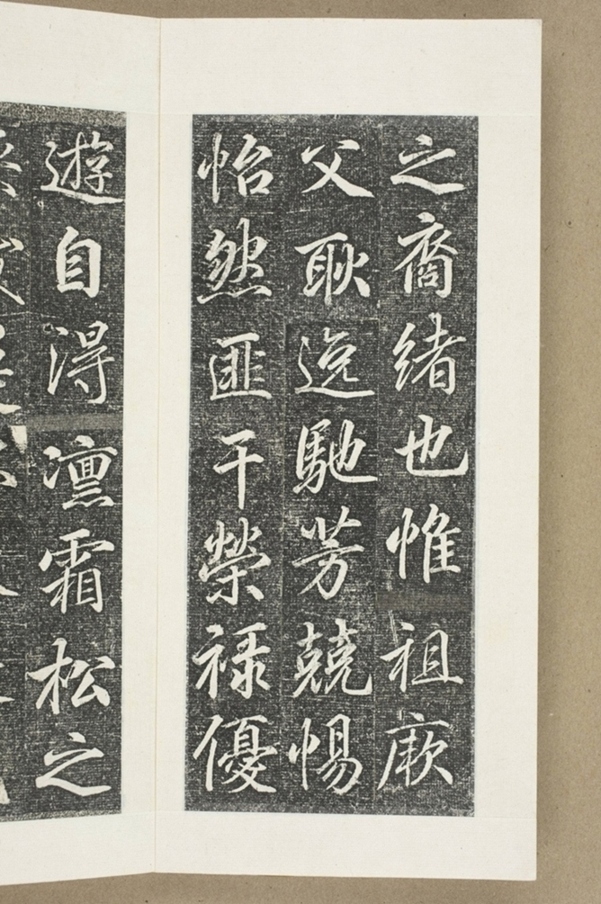 之裔緒也惟祖厥
父耿逸馳芳兢惕
怡然匪干榮禄優
遊自得凛霜松之